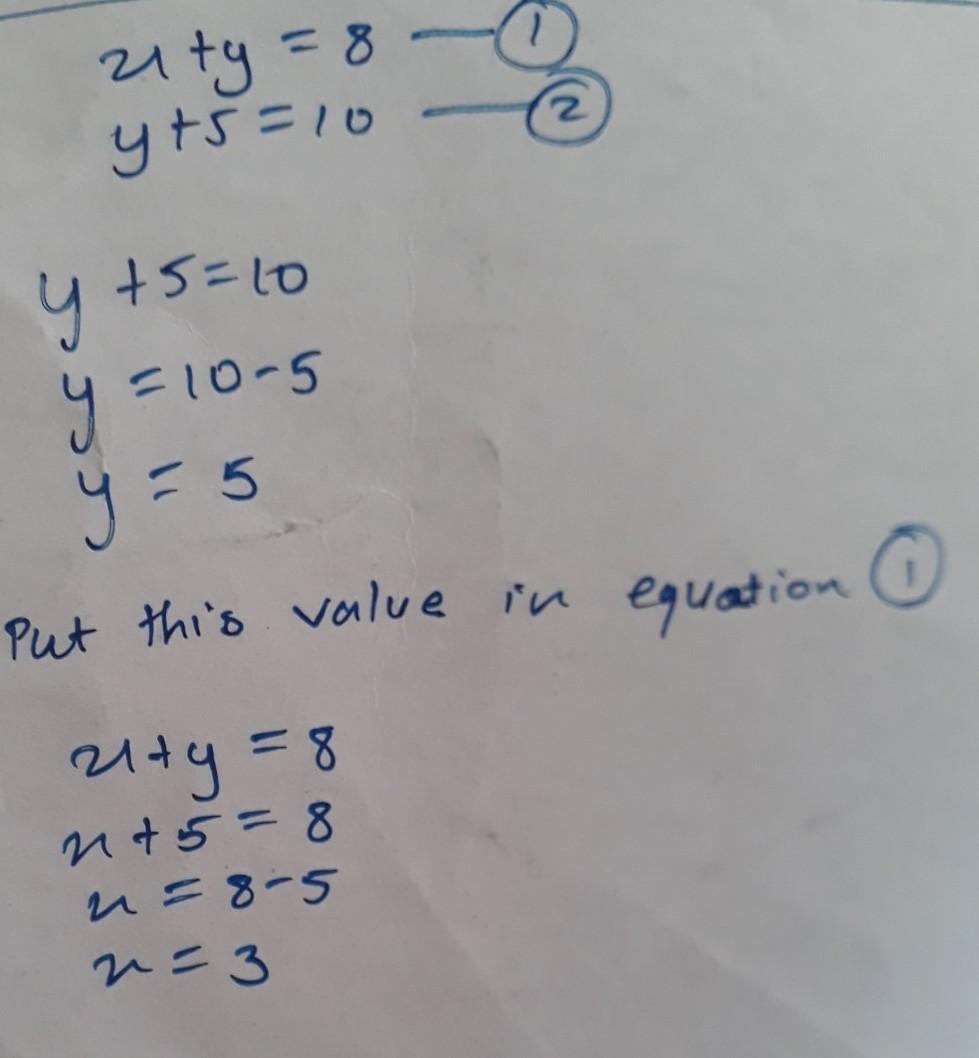 x+y = 8 — ①
y+5 = 10 — ②
y +5=10
y =10-5
y = 5
Put this value in equation ①
x+y = 8
x+5 = 8
x = 8-5
x = 3